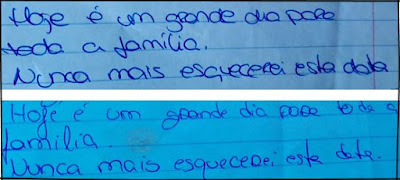 Hoje é um grande dia para
toda a família.
Nunca mais esquecerei esta data
Hoje é um grande dia para toda a
família.
Nunca mais esquecerei esta data.